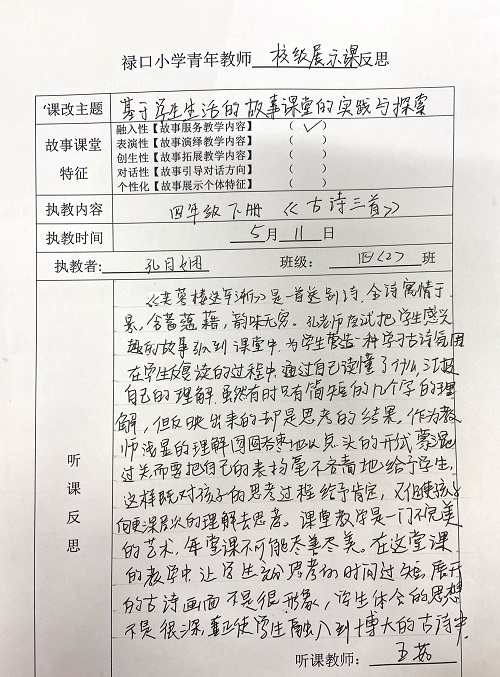 禄口小学青年教师 校级展示课反思
课改主题 基于学生生活的故事课堂的实践与探索
故事课堂特征
融入性【故事服务教学内容】 （ ✓ ）
表演性【故事演绎教学内容】 （ ）
创生性【故事拓展教学内容】 （ ）
对话性【故事引导对话方向】 （ ）
个性化【故事展示个体特征】 （ ）
执教内容 四年级下册《古诗三首》
执教时间 5月11日
执教者: 孔月 班级: 四（2）班
听课反思
《芙蓉楼送辛渐》是一首送别诗，全诗寓情于
景，含蓄蕴藉，韵味无穷。孔老师应试把学生感兴
趣的故事引入到课堂中，为学生营造一种学习古诗氛围
在学生反复读的过程中，通过自己读懂了什么，汇报
自己的理解。虽然有时只有简短的几个字的理
解，但反映出来的却是思考的结果。作为教
师浅显的理解 地以点头的形式蒙混
过关而要把自己的表扬毫不吝啬地给予学生，
这样既对孩子的思考过程给予肯定，又促使孩子
向更深层次的理解去思考。课堂教学是一门不完美
的艺术，每堂课不可能尽善尽美。在这堂课
的教学中，让学生充分思考的时间过短，展开
的古诗画面不是很形象，学生体会的思想
不是很深，真正使学生融入到博大的古诗中
听课教师: 王茹